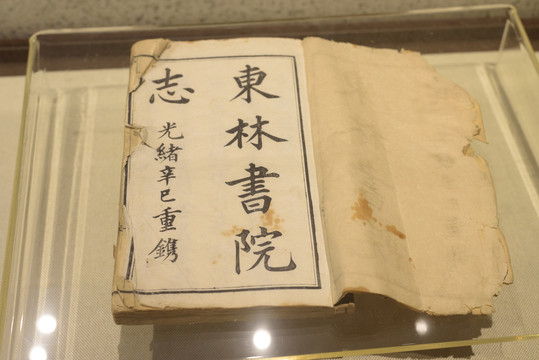 東林書院
志
光緒辛巳重鐫